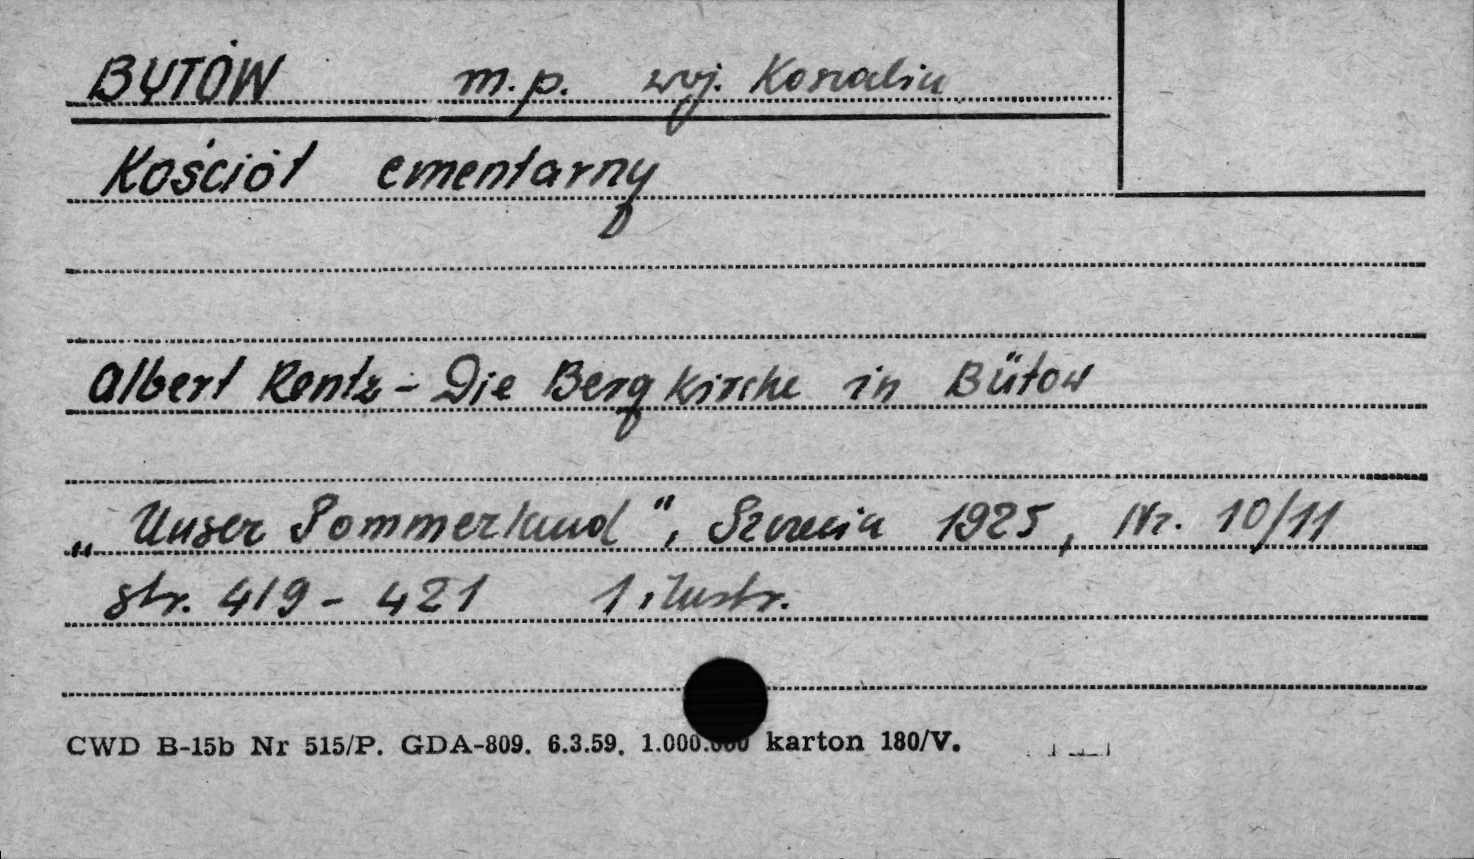 BYTÓW m.p. woj. Koszalin
Kościół cmentarny
Albert Rentz - Die Bergkirche in Bütow
„Unser Pommerland", Szczecin 1925, Nr. 10/11
str. 419 - 421 1 ilustr.
CWD B-15b Nr 515/P. GDA-809. 6.3.59. 1.000.000 karton 180/V.